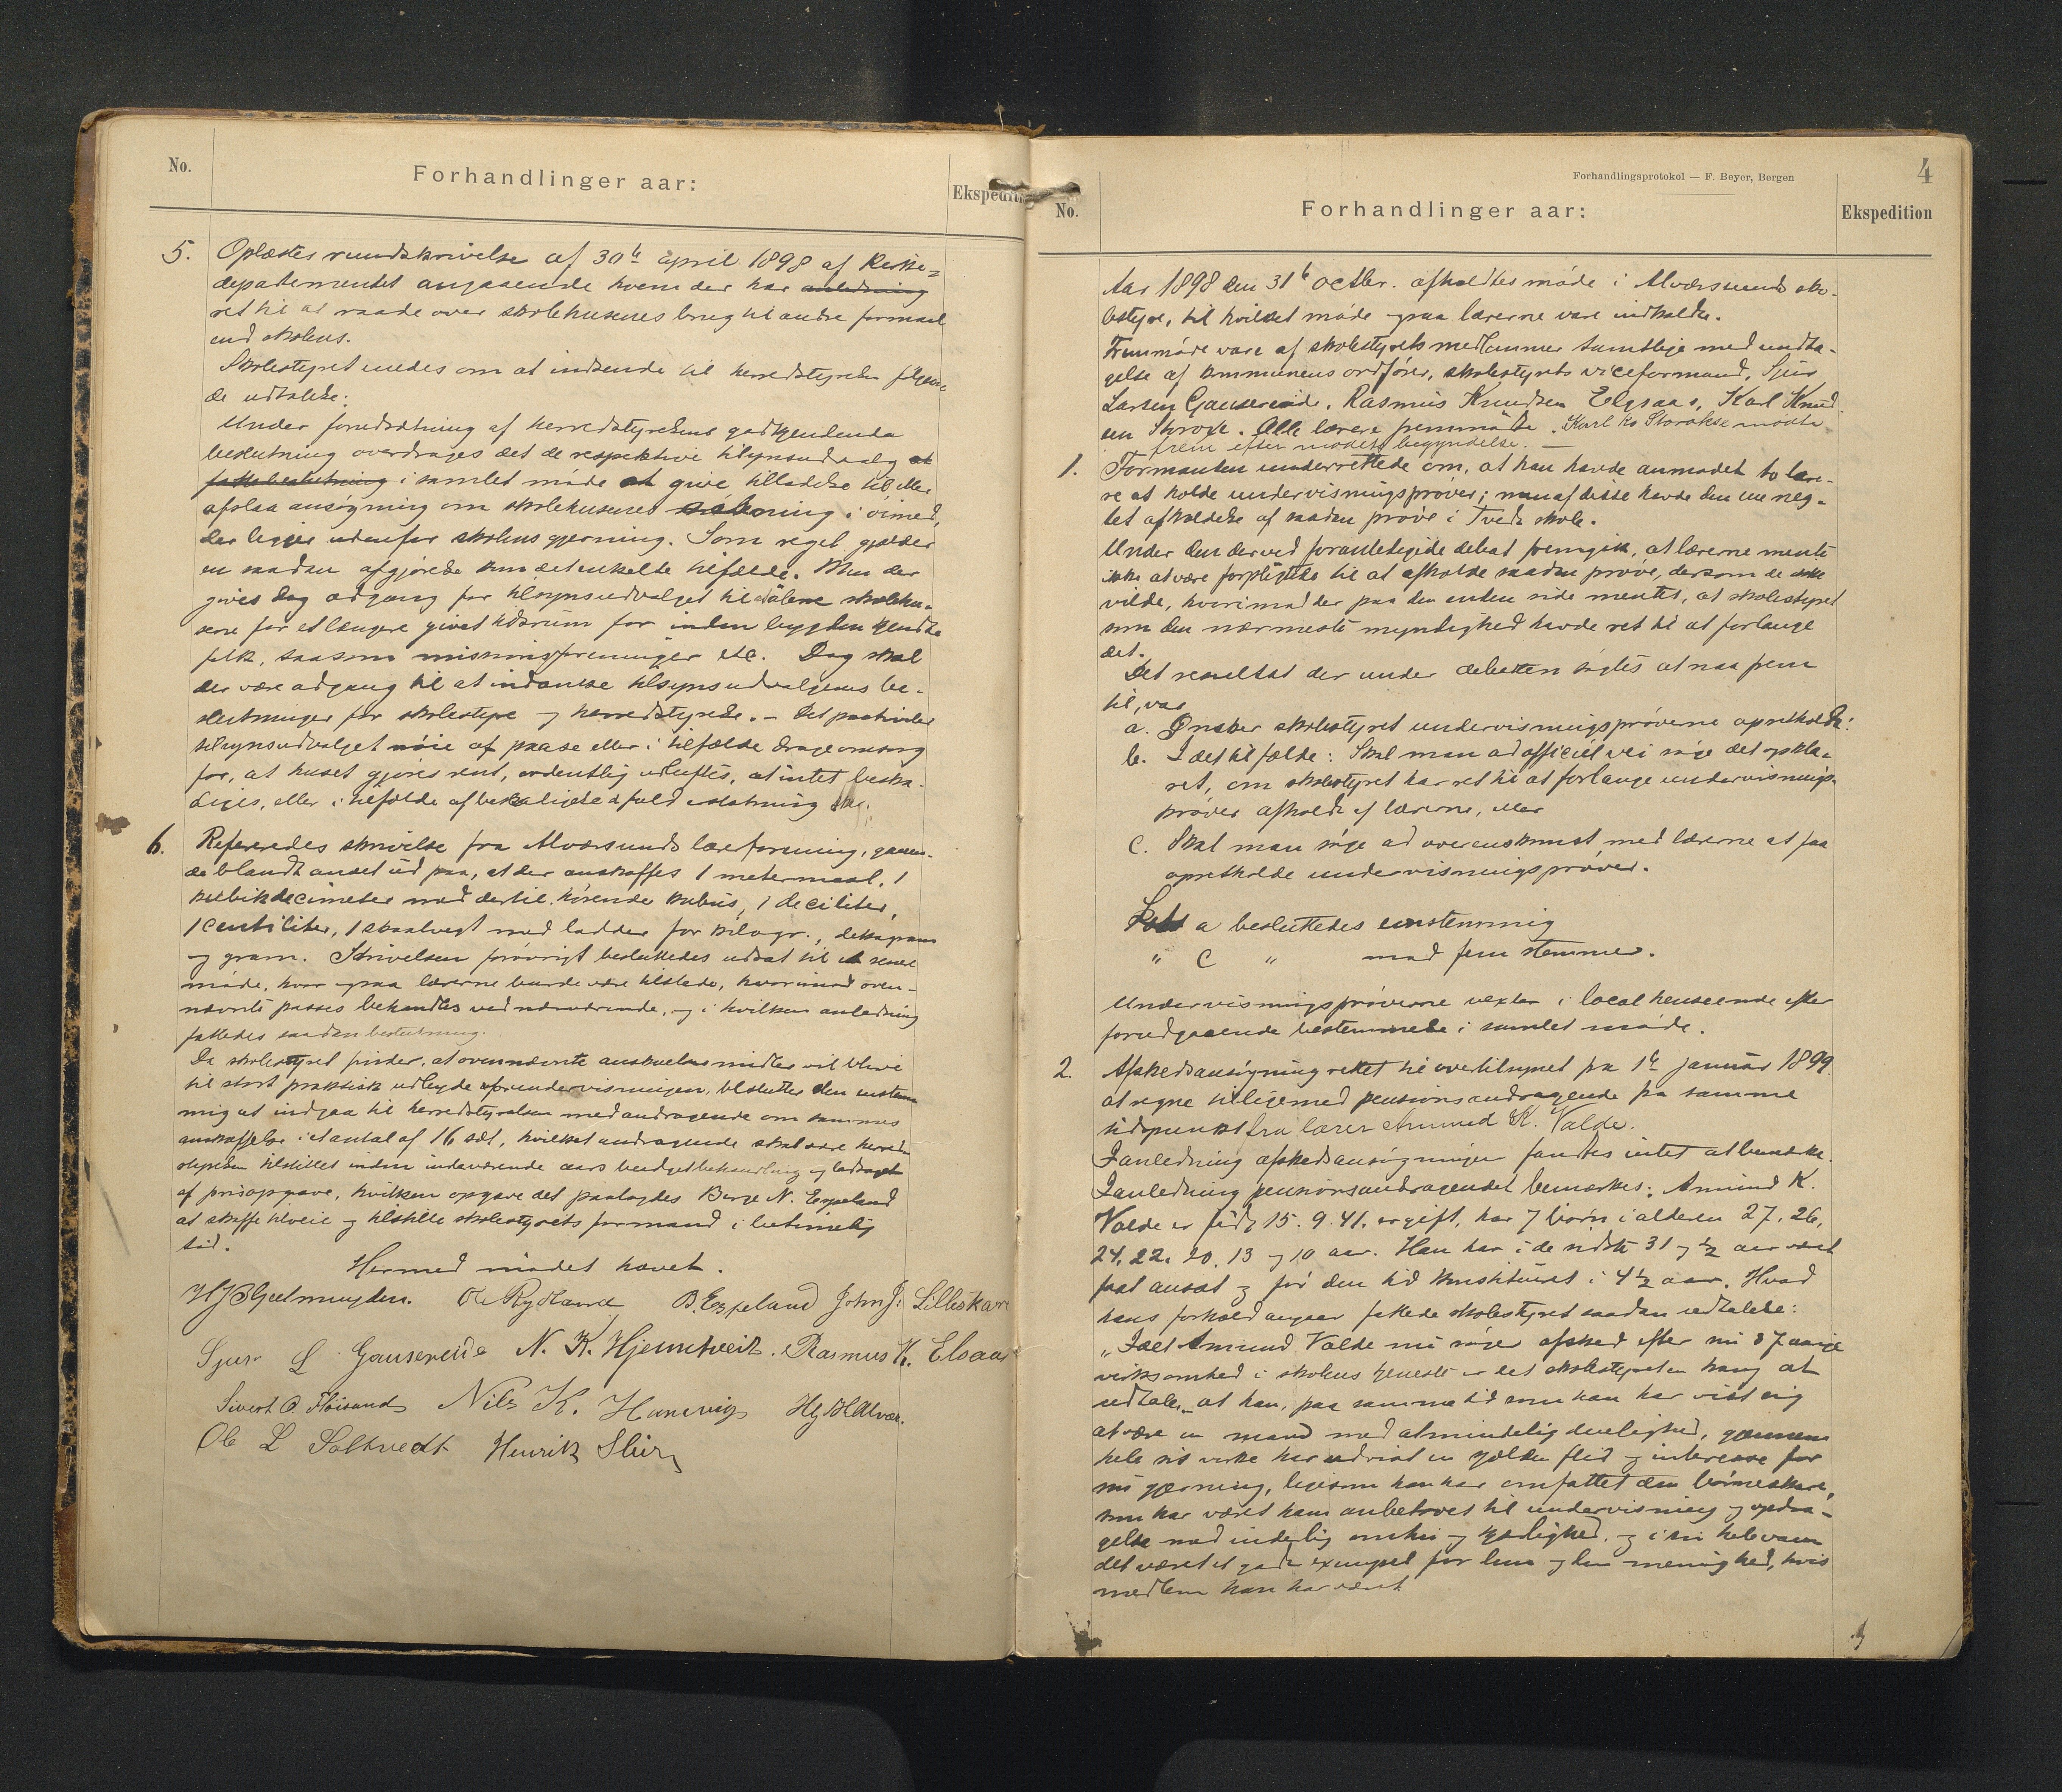 No.
Forhandlinger aar:
Ekspediti
5. Oplæstes rundskrivelse af 30te april 1898 af Kirke=
departementet angaaende hvem der har anledning
ret til at raade over skolehusenes brug til andre formaal
end skolens.
Skolestyret enedes om at indsende til herredstyrelsen følgen-
de udtalelse:
Under forudsætning af herredstyrelsens godkjendende
beslutning overdrages det de respektive tilsynsudvalg at
fatte beslutning i samlet møde at give tilladelse til, eller
afslaa ansøgning om skolehusenes aabning i øimed,
der ligger udenfor skolens gjerning. Som regel gjælder
en saadan afgjørelse kun det enkelte tilfælde. Men der
gives dog adgang for tilsynsudvalget til at aabne skolehu-
sene for et længere givet tidsrum for inden bygden kjendte
folk, saasom missionsforeninger etc. Dog skal
der være adgang til at indanke tilsynsudvalgenes be-
slutninger for skolestyre og herredstyrelse. – Det paahviler
tilsynsudvalget nøie at paase eller i tilfælde drage omsorg
for, at huset gjøres rent, ordentlig udluftes, at intet beska-
diges, eller i tilfælde af beskadigelse at fuld erstatning sker.
6. Refereredes skrivelse fra Alværsunds lærerforening, gaaen-
de blandt andet ud paa, at der anskaffes 1 metermaal, 1
kubikdecimeter med dertil hørende kubus, 1 deciliter,
1 centiliter, 1 skaalvegt med lodder for kilogr., dekagram
og gram. Skrivelsen forøvrigt besluttedes udsat til et senere
møde, hvor ogsaa lærerne burde være tilstede, hvorimod oven-
nævnte passus behandles ved nærværende, og i hvilken anledning
fattedes saadan beslutning.
Da skolestyret finder, at ovennævnte anskuelsesmidler vil blive
til stort praktisk udbytte for undervisningen, besluttes den enstem
mig at indgaa til herredstyrelsen med andragende om sammes
anskaffelse i et antal af 16 sæt, hvilket andragende skal være herred-
styrelsen tilstillet inden indeværende aars budgetbehandling og ledsaget
af prisopgave, hvilken opgave det paalagdes Berge N. Espeland
at skaffe tilveie og tilstille skolestyrets formand i betimelig
tid.
Hermed mødet hævet.
H J Geelmuyden. Ole Rydland B. Espeland John J. Lilleskare
Sjur L Gausereide N. K. Hjelmtveit. Rasmus K. Elsaas
Sivert O Fløisand Nils K. Hanevig Hg H Alvær.
Ole L Soltvedt Henrik Hur
Forhandlingsprotokol — F. Beyer, Bergen
4
No.
Forhandlinger aar:
Ekspedition
Aar 1898 den 31te octbr. afholdtes møde i Alværsunds sko-
lestyre, til hvilket møde ogsaa lærerne vare indkaldte.
Fremmøde vare af skolestyrets medlemmer samtlige med undta-
gelse af kommunens ordfører, skolestyrets viceformand, Sjur
Larsen Gausereide, Rasmus Knudsen Elsaas, Karl Knud
sen Storoxe. Alle lærere fremmødte. Karl Kn Storokse mødte
frem efter mødets begyndelse. —
1. Formanden underrettede om, at han havde anmodet to læ-
re at holde undervisningsprøver; men af disse havde den ene neg-
tet afholdelse af saadan prøve i Tveit skole.
Under den derved foranledigede debat fremgik, at lærerne mente
ikke at være forpligtede til at afholde saadan prøve, dersom de ikke
vilde, hvorimod der paa den anden side mentes, at skolestyret
som den nærmeste myndighed havde ret til at forlange
det.
Det resultat der under debatten søgtes at naa frem
til, var
a. Ønsker skolestyret undervisningsprøverne opretholdt:
b. I det tilfælde: Skal man ad officiel vei søge det opkla-
ret, om skolestyret har ret til at forlange undervisnings-
prøver afholdt af lærerne, eller
c. Skal man søge ad overenskomst med lærerne at faa
opretholde undervisningsprøver.
a besluttedes enstemmig
" c " med fem stemmer.
Undervisningsprøverne vexler i local henseende efter
forudgaaende bestemmelse i samlet møde.
2. Afskedsansøgning rettet til overtilsynet fra 1te januar 1899
at regne tilligemed pensionsandragende fra samme
tidspunkt fra lærer Amund K. Valde.
I anledning afskedsansøgningen fandtes intet at bemærke.
I anledning pensionsandragendet bemærkes: Amund K.
Valde er født 15. 9. 41. er gift, har 7 børn i alderen 27, 26,
24, 22, 20, 13 og 10 aar. Han har i de sidste 31 og ½ aar været
fast ansat og før den tid konstitueret i 4½ aar. Hvad
hans forhold angaar fattede skolestyret saadan udtalelse:
„Idet Amund Valde nu søger afsked efter sin 37 aarige
virksomhed i skolens tjeneste er det skolestyret en trang at
udtale, at han, paa samme tid som han har vist sig
at være en mand med almindelig duelighed, gjennem
hele sit virke har udvist en sjelden flid og interesse for
sin gjerning, ligesom han har omfattet den børneskare,
som har været ham anbetroet til undervisning og opdra-
gelse med inderlig omhu og kjærlighed, og i sin hele vandel
været et godt exempel for den menighed, hvis
medlem han har været